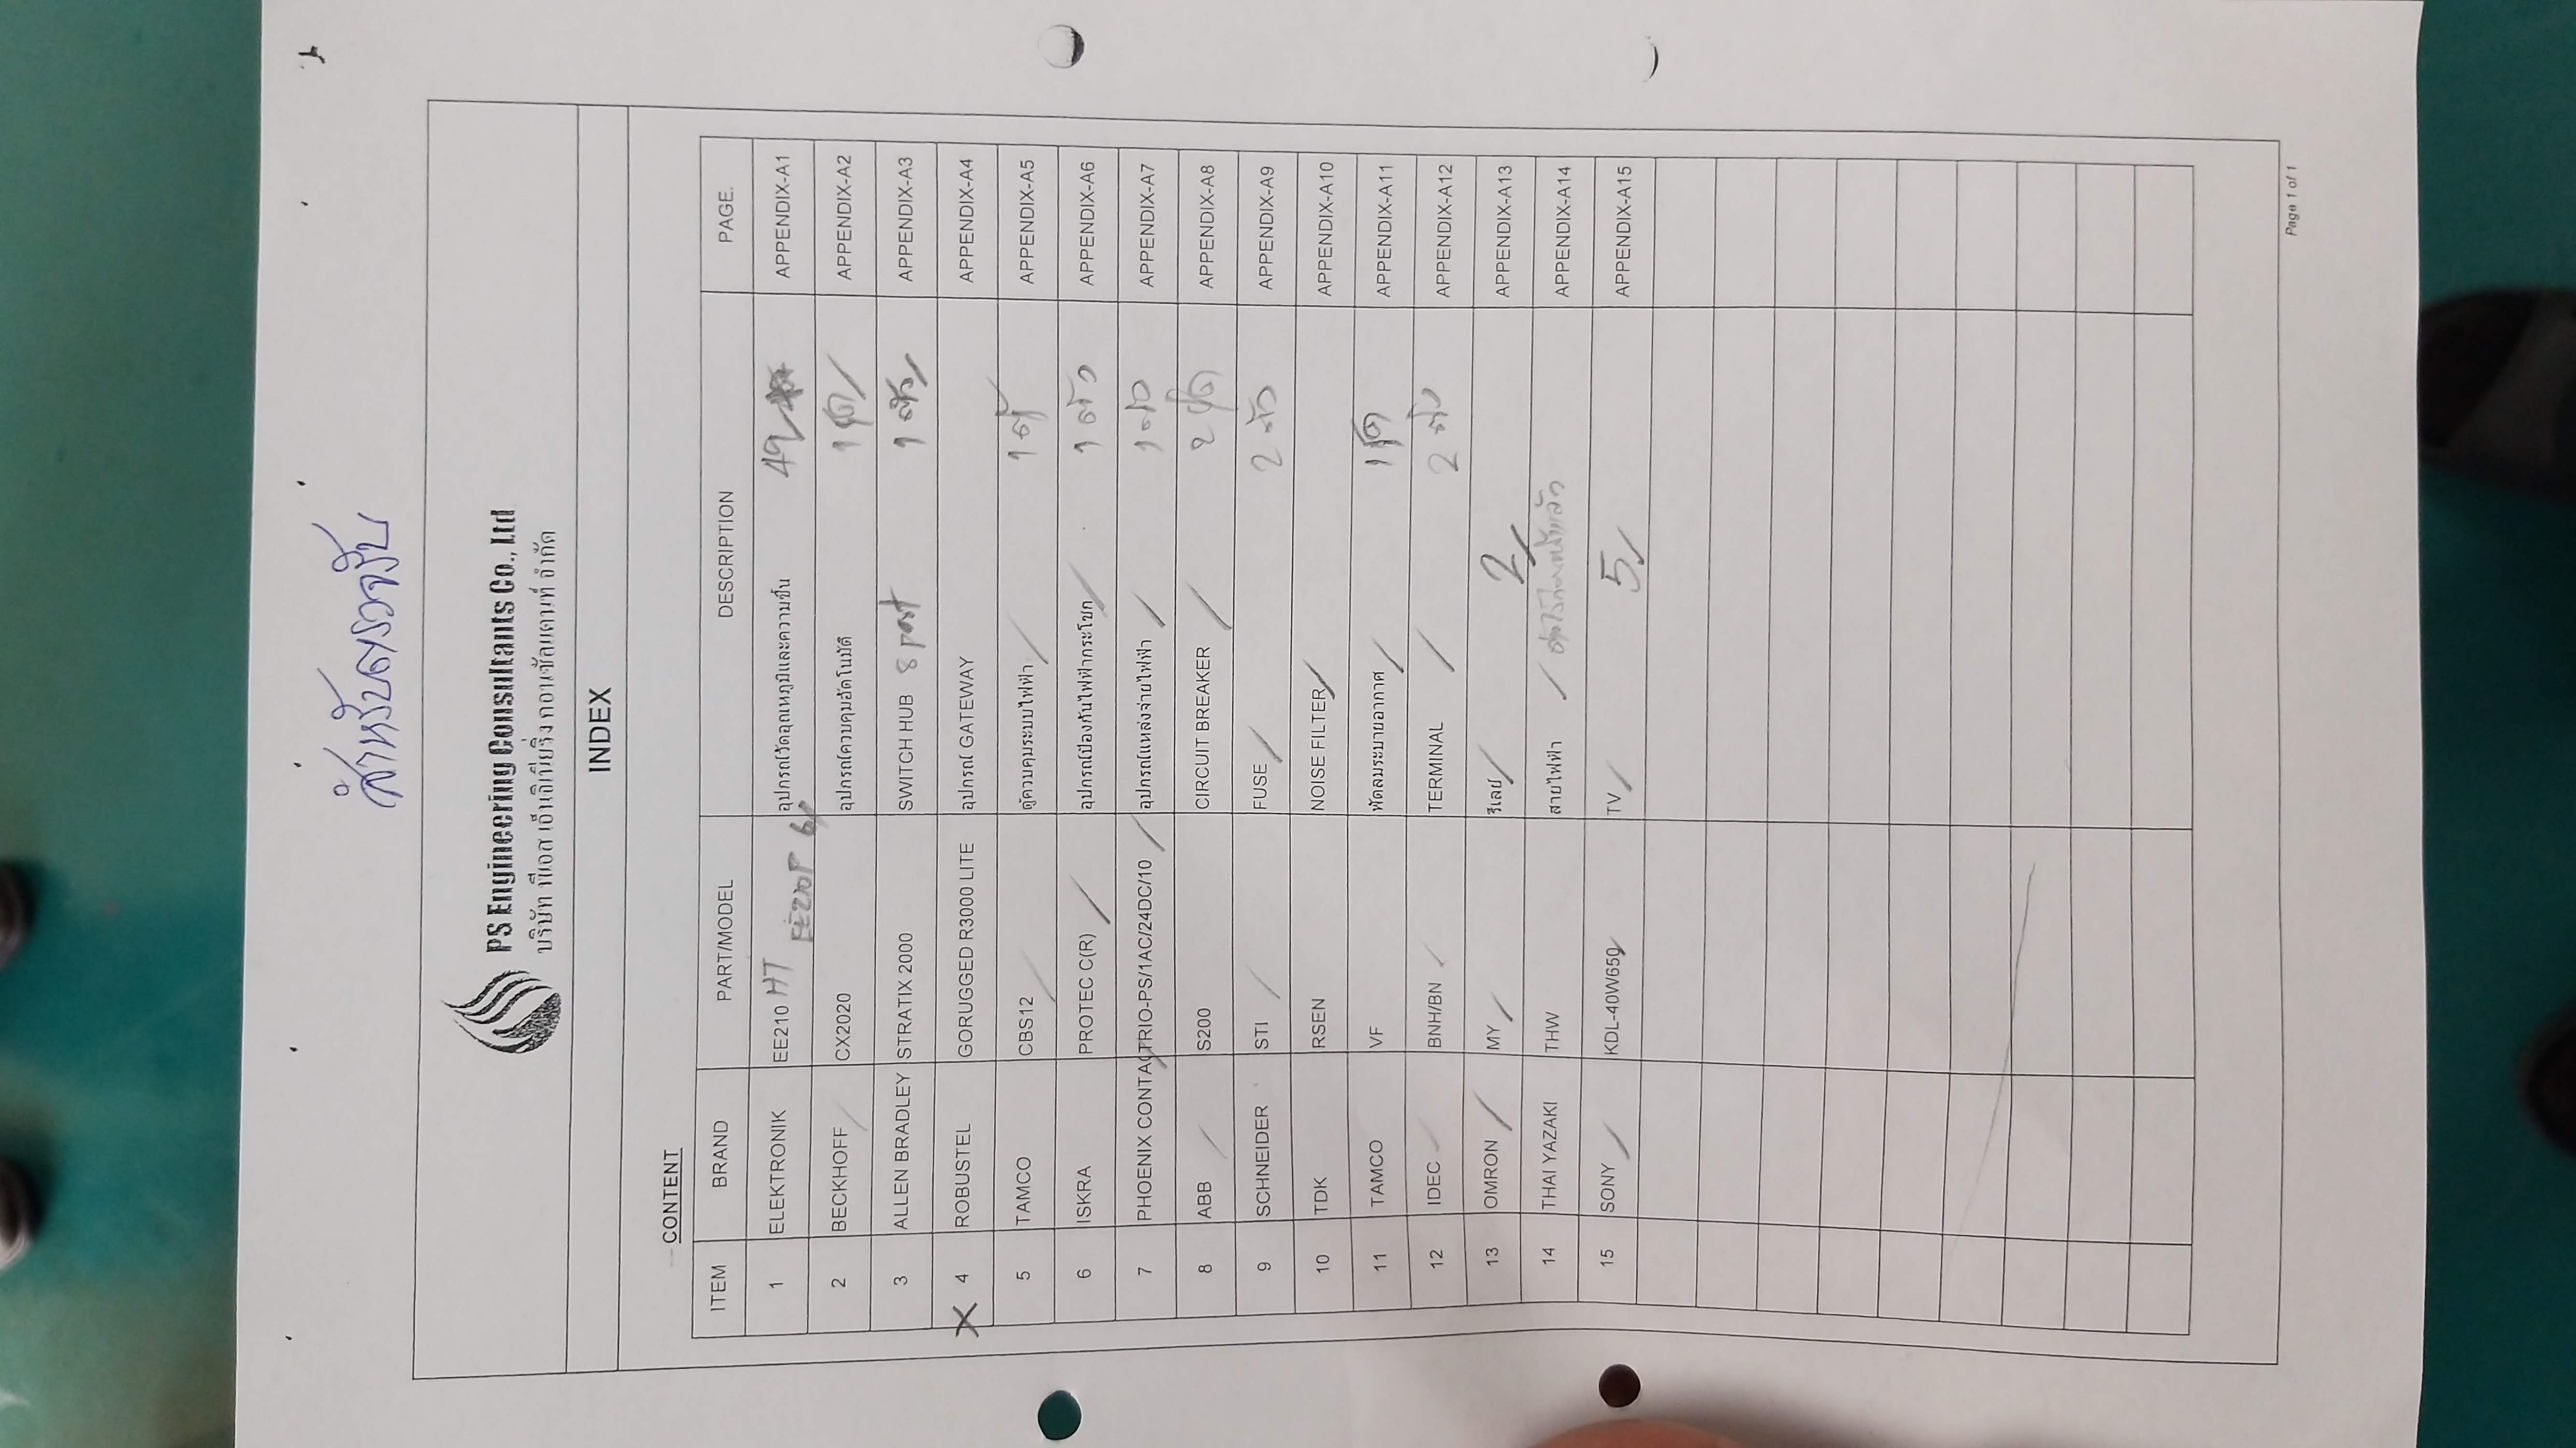 สำหรับตรวจรับ
PS Engineering Consultants Co., Ltd
บริษัท พีเอส เอ็นจิเนียริ่ง คอนซัลแตนท์ จำกัด
INDEX
CONTENT
ITEM BRAND PART/MODEL DESCRIPTION PAGE.
1 ELEKTRONIK EE210 HT EE200P อุปกรณ์วัดอุณหภูมิและความชื้น 49 APPENDIX-A1
2 BECKHOFF CX2020 อุปกรณ์ควบคุมอัตโนมัติ 1 ชุด APPENDIX-A2
3 ALLEN BRADLEY STRATIX 2000 SWITCH HUB 8 port 1 ตัว APPENDIX-A3
X 4 ROBUSTEL GORUGGED R3000 LITE อุปกรณ์ GATEWAY APPENDIX-A4
5 TAMCO CBS12 ตู้ควบคุมระบบไฟฟ้า 1 ตู้ APPENDIX-A5
6 ISKRA PROTEC C(R) อุปกรณ์ป้องกันไฟฟ้ากระโชก 1 ตัว APPENDIX-A6
7 PHOENIX CONTACT TRIO-PS/1AC/24DC/10 อุปกรณ์แหล่งจ่ายไฟฟ้า 1 ตัว APPENDIX-A7
8 ABB S200 CIRCUIT BREAKER 2 ชุด APPENDIX-A8
9 SCHNEIDER STI FUSE 2 ตัว APPENDIX-A9
10 TDK RSEN NOISE FILTER APPENDIX-A10
11 TAMCO VF พัดลมระบายอากาศ 1 ชุด APPENDIX-A11
12 IDEC BNH/BN TERMINAL 2 APPENDIX-A12
13 OMRON MY รีเลย์ 2 APPENDIX-A13
14 THAI YAZAKI THW สายไฟฟ้า APPENDIX-A14
15 SONY KDL-40W650 TV 5 APPENDIX-A15
Page 1 of 1